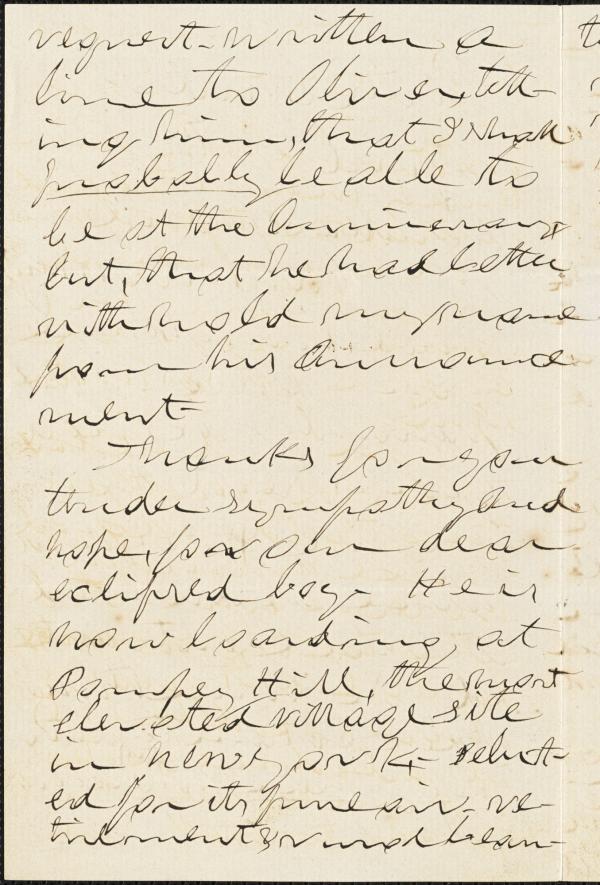 request - written a
line to Oliver, tell-
ing him, that I shall
probably be able to
be at the Anniversary
but, that he had better
withhold my name
from his announce
ment -
Thanks for your
tender sympathy and
hope, for our dear
eclipsed boy - He is
now boarding at
Pompey Hill, the most
elevated village site
in New York -
ed for its pure air - re-
tirement & rural beau-